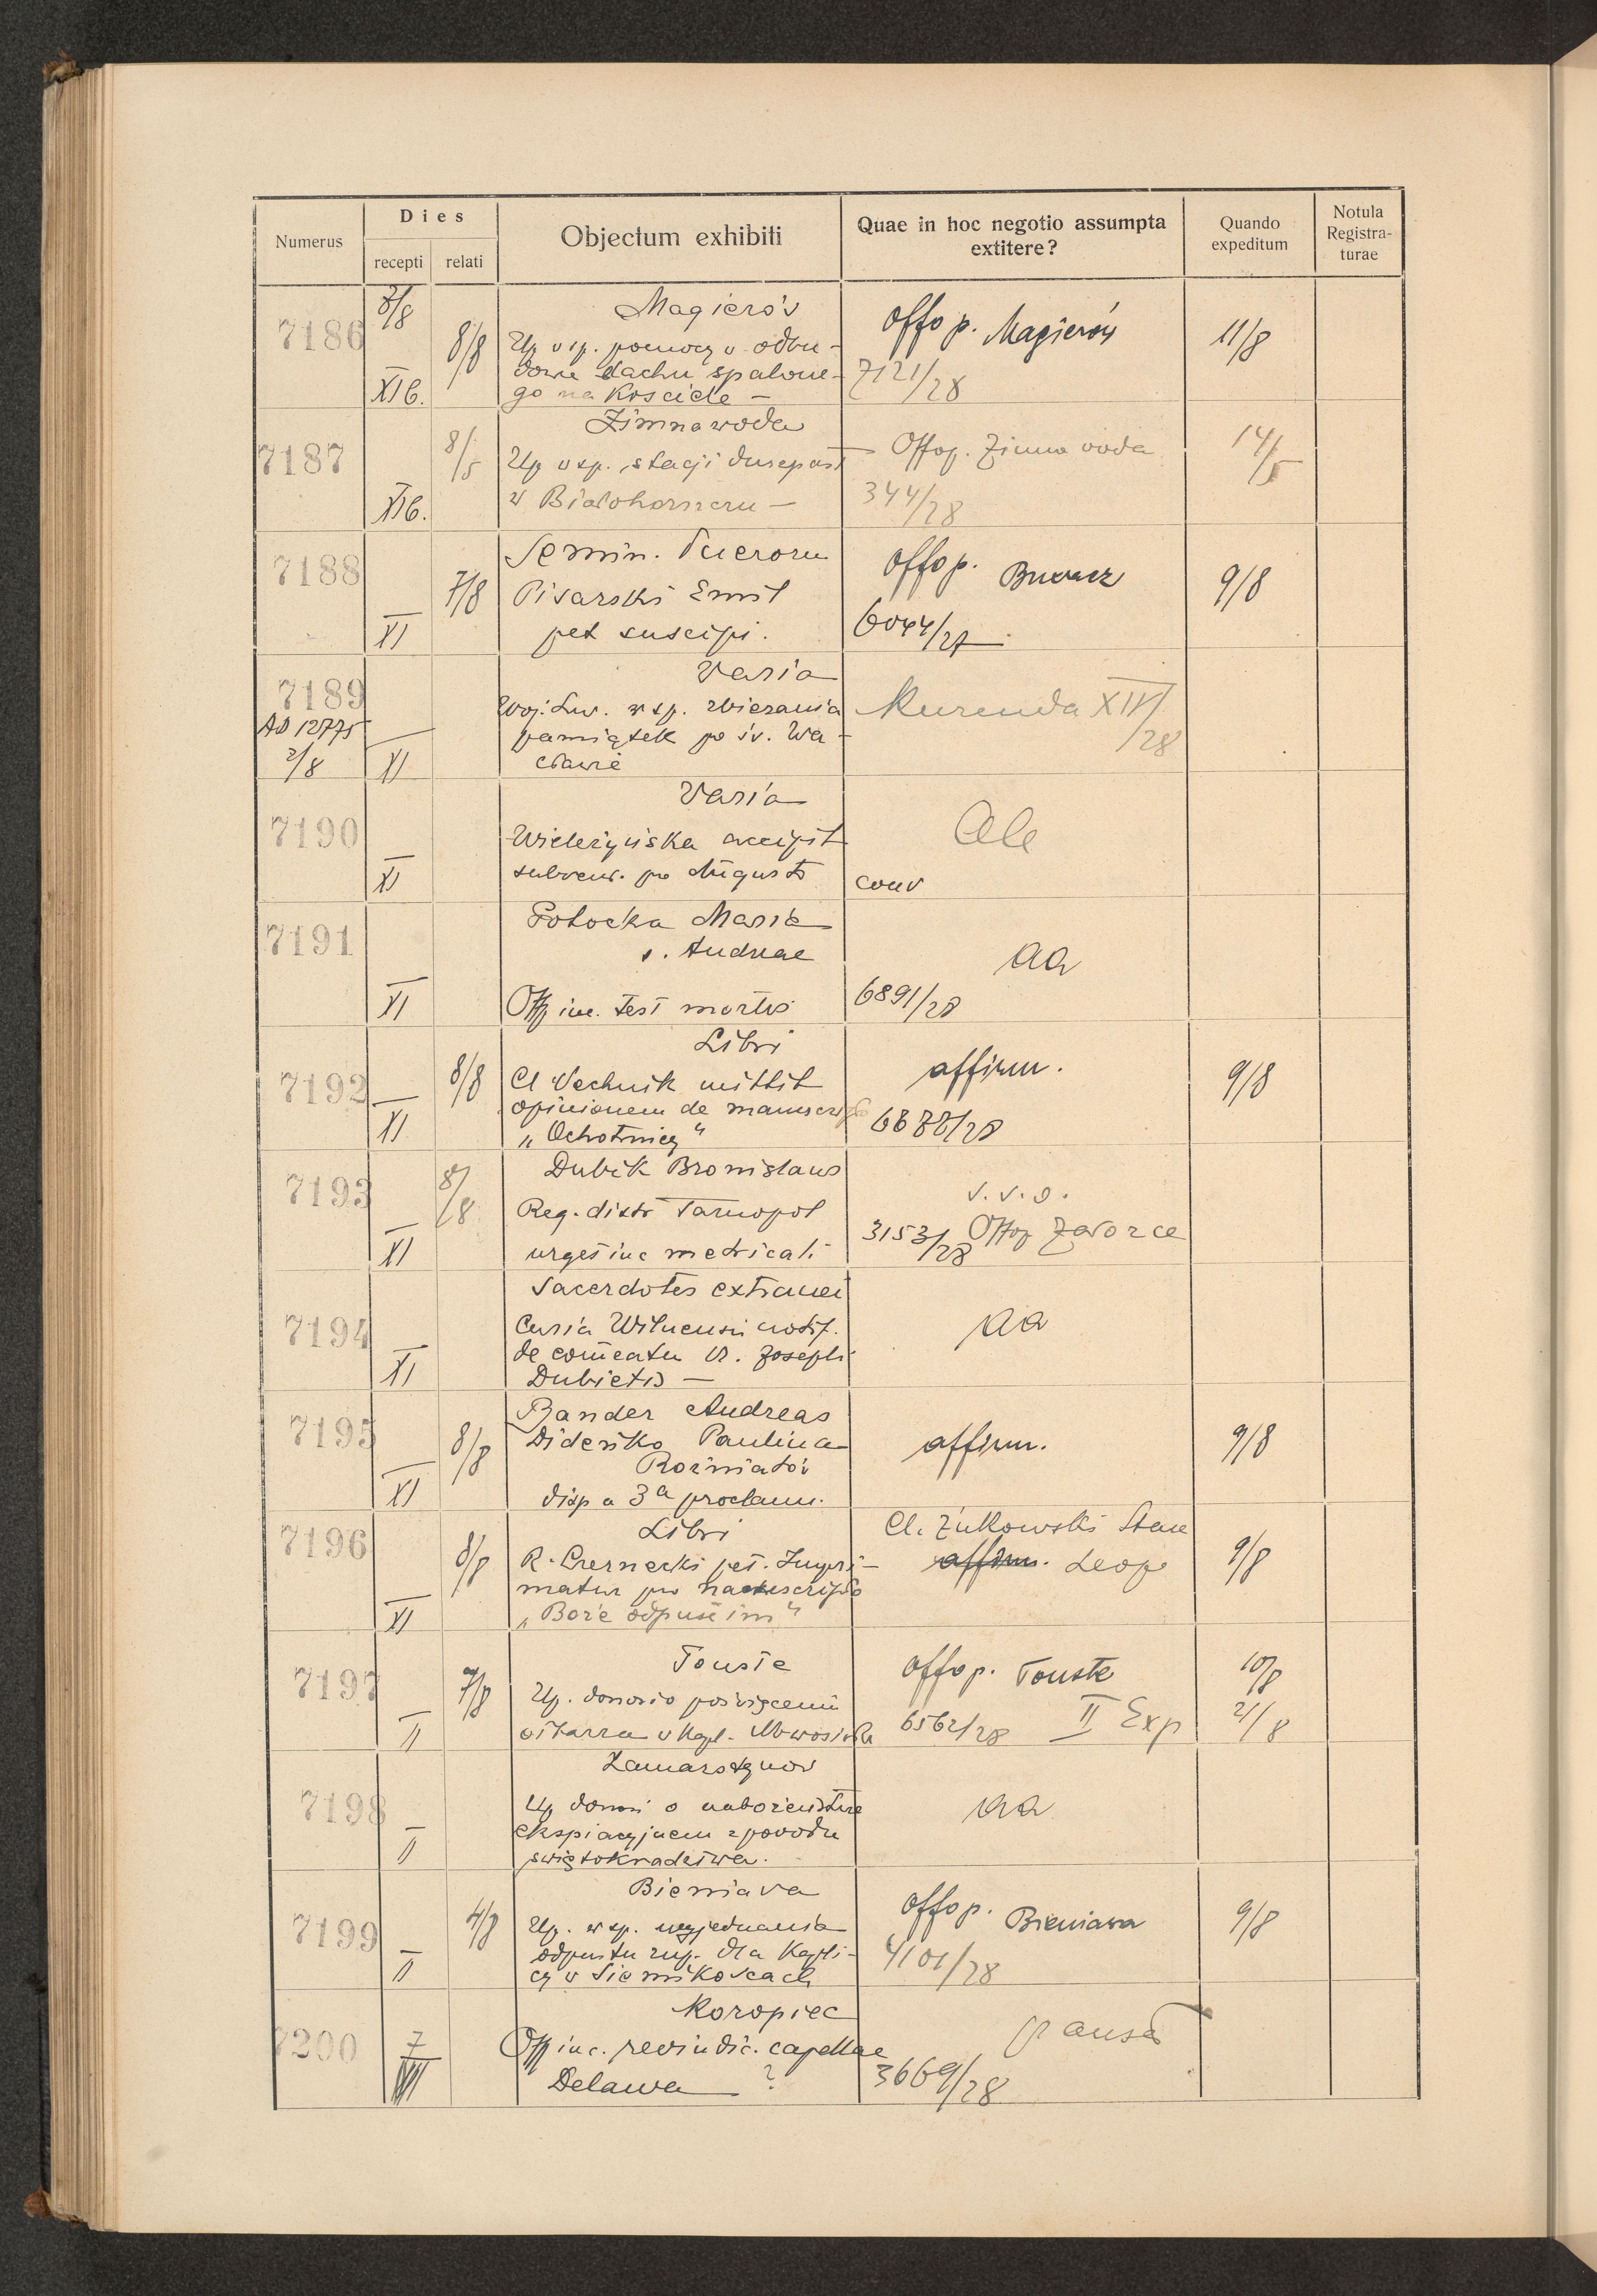 Numerus
Dies
recepti relati
Objectum exhibiti
Quae in hoc negotio assumpta
extitere?
Quando
expeditum
Notula
Registra-
turae
7186
8/8
XIb.
8/8
Magierów
Up w sp. pomocy w odbu-
dowie dachu spalone-
go na kościele —
Offo p. Magierów
7121/28
11/8
7187
XIb.
8/5
Zimnawoda
Up w sp. stacji duszpast
w Białohorszczu —
Offop. Zimna woda
344/28
14/5
7188
XI
7/8
Semin. Puerorum
Pisarski Emil
pet suscipi.
Offo p. Buczacz
6044/27
9/8
7189
AD 12775
2/8
XI
Varia
Woj. Lw. w sp. zbierania
pamiątek po św. Wa-
cławie
Kurenda XIV/
/28
7190
XI
Varia
Wieleżyńska accipit
subven. pro Augusto
Ale
conv
7191
XI
Potocka Maria
s. Andreae
Offp inc. test mortis
aa
6891/28
7192
XI
8/8
Libri
Cl Wechnik mittit
opinionem de manuscripto
„Ochotnicy"
affirm.
6888/28
9/8
7193
XI
8/8
Dubik Bronislaus
Reg. distr Tarnopol
urget inc metricali
v. v. o.
3153/28 Offop Zaworce
7194
XI
Sacerdotes extranei
Curia Wilnensis notif.
de comeatu R. Josephi
Dubietis —
aa
7195
XI
8/8
Bander Andreas
Dideńko Paulina
Rożniatów
disp a 3a proclam.
affirm.
9/8
7196
XI
8/8
Libri
R. Czernecki pet. Impri-
matur pro manuscripto
„Boże odpuść im"
Cl. Żukowski Stan
affirm. Leop
9/8
7197
II
7/8
Touste
Up. donosi o poświęceniu
ołtarza w Kapl.
Offo p. Touste
6562/28 II Exp
10/8
21/8
7198
II
Zamarstynów
Up donosi o nabożeństwie
ekspiacyjnem z powodu
świętokradztwa.
aa
7199
II
4/8
Bieniawa
Up. w sp. wyjednania
odpustu zup. dla kapli-
cy w Siemikowcach
Offo p. Bieniawa
4101/28
9/8
7200
7
VIII
Koropiec
Offp inc. revindic. capellae
Delawa ?
pausa
3669/28